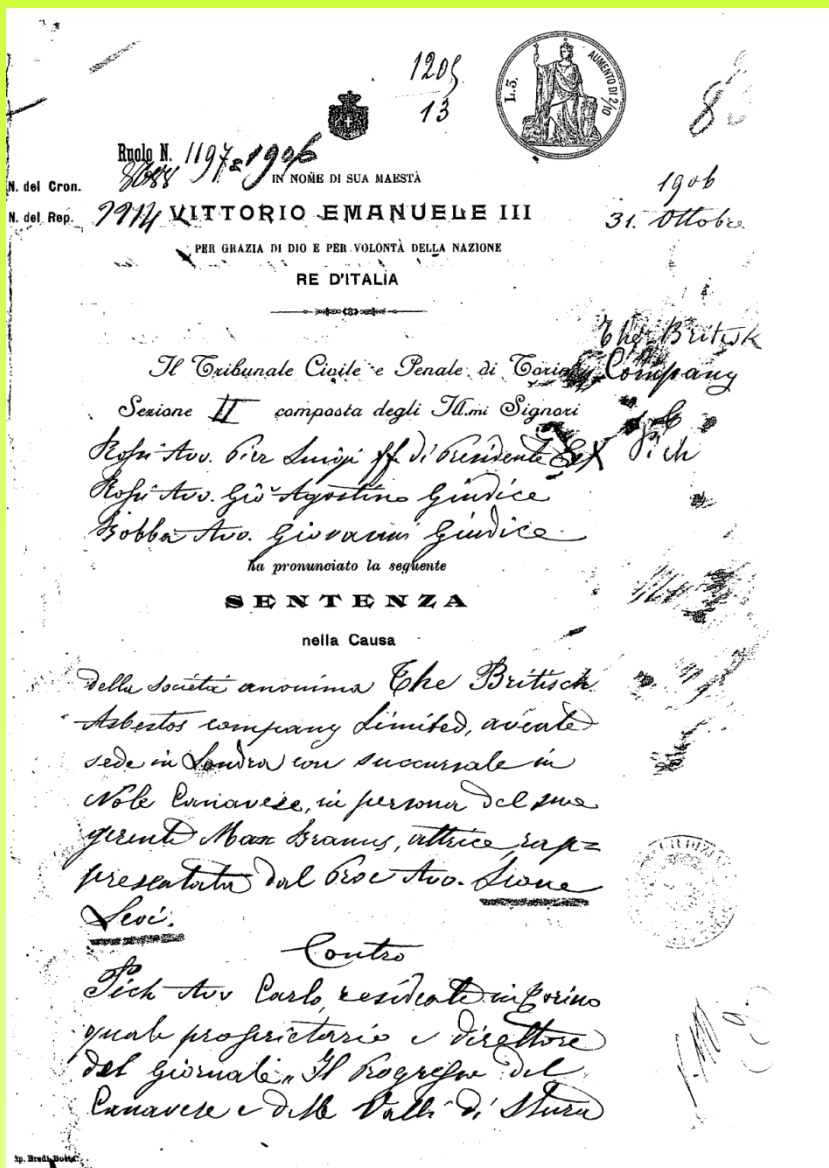 1205
13
L.3.
AUMENTO DI 2/10
8
Ruolo N. 1197 = 1906
N. del Cron. 8088
IN NOME DI SUA MAESTÀ
1906
N. del Rep. 2914 VITTORIO EMANUELE III
31. Ottobre
PER GRAZIA DI DIO E PER VOLONTÀ DELLA NAZIONE
RE D'ITALIA
The Britisk
Company
Pich
Il Tribunale Civile e Penale di Torino
Sezione II composta degli Ill.mi Signori
Rossi Avv. Pier Luigi ff. di Presidente
Rossi Avv. Gio Agostino Giudice
Bobba Avv. Giovanni Giudice
ha pronunciato la seguente
SENTENZA
nella Causa
della società anonima The Britisch
Asbestos company Limited, avente
sede in Londra con succursale in
Nole Canavese, in persona del suo
gerente Max Brauns, attrice rap=
presentata dal Proc Avv. Leone
Levi.
Contro
Pich Avv Carlo, residente in Torino
quale proprietario e direttore
del giornale „Il Progresso del
Canavese e delle Valli di Stura